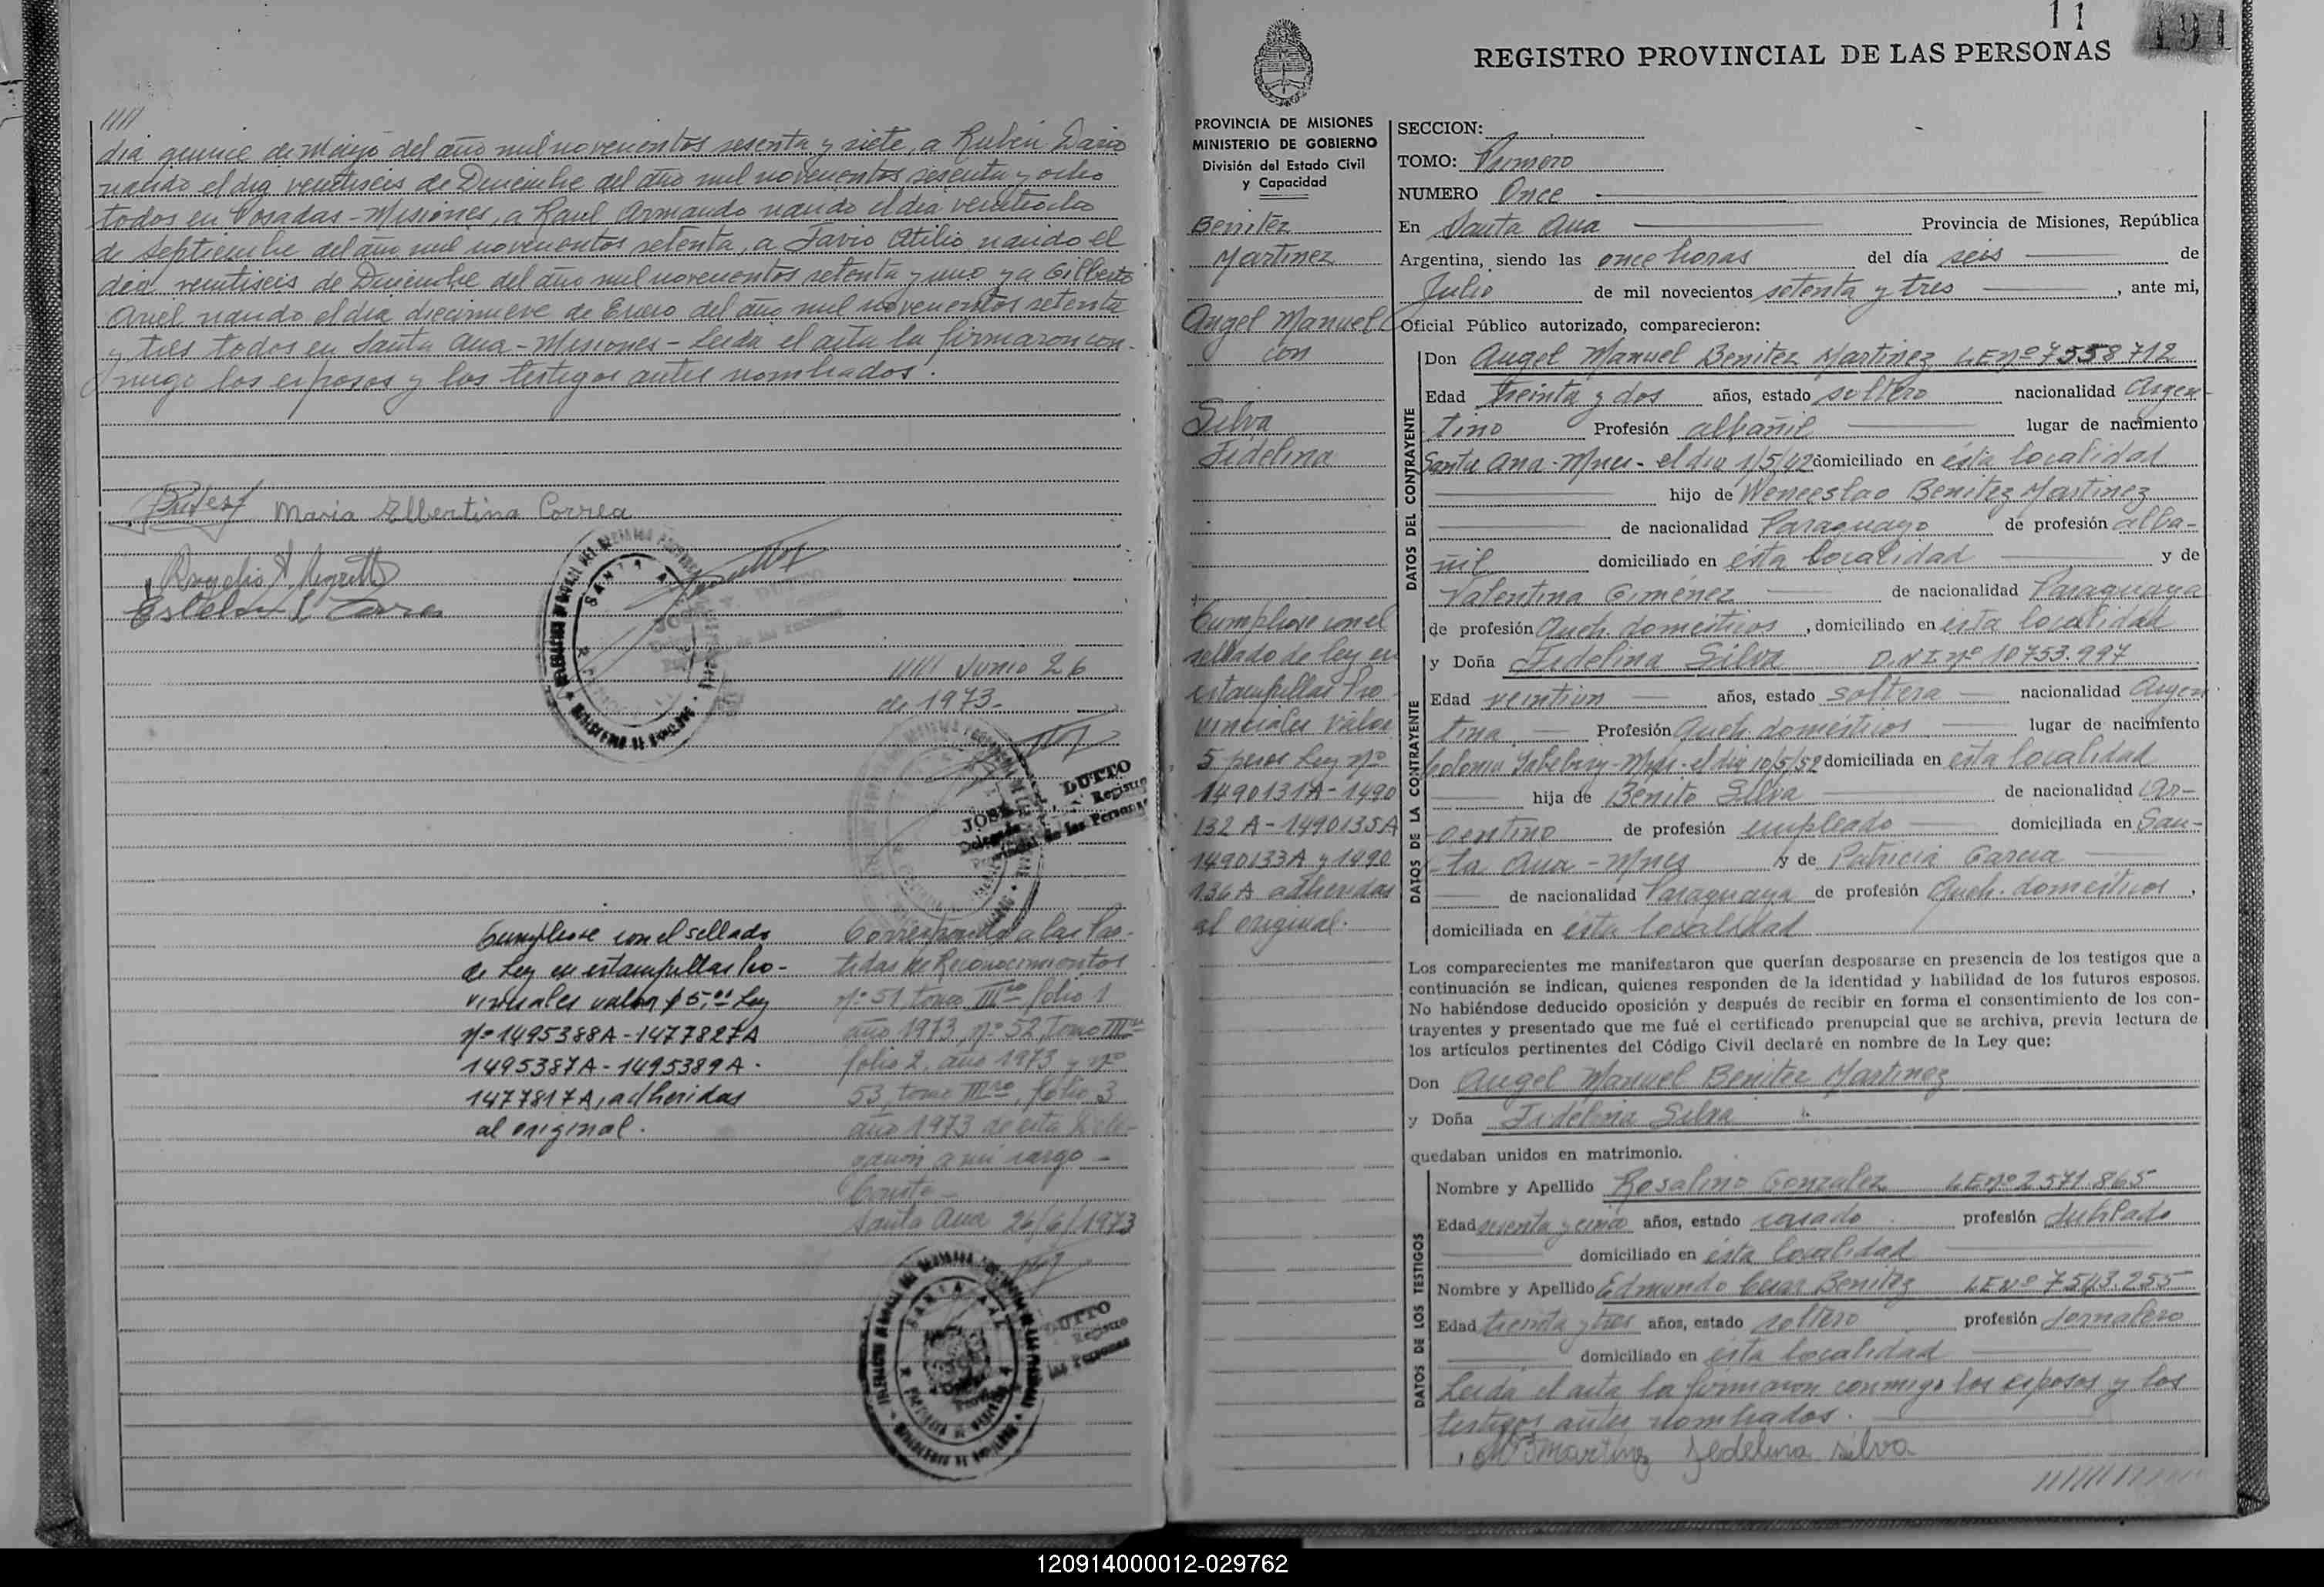 ////
día quince de Mayo del año mil novecientos sesenta y siete, a Rubén Dario
nacido el día veintiseis de Diciembre del año mil novecientos sesenta y ocho
todos en Posadas - Misiones, a Raul Armando nacido el día veintiocho
de Septiembre del año mil novecientos setenta, a Favio Atilio nacido el
día veintiseis de Diciembre del año mil novecientos setenta y uno y a Gilberto
Ariel nacido el día diecinueve de Enero del año mil novecientos setenta
y tres todos en Santa Ana - Misiones - Leida el acta la firmaron con-
migo los esposos y los testigos antes nombrados.
Maria Elbertina Correa
//// Junio 26
de 1973.
JOSE LUTTO
Cumpliose con el sellado
de Ley en estampillas Pro-
vinciales valor $ 5,00 Ley
Nº 1495388A - 1477827A
1495387A - 1495389A -
1477817A, adheridas
al original.
Corresponde a las Par-
tidas de Reconocimientos
Nº 51, tomo IIIro folio 1
año 1973, nº 52, Tomo IIIro
folio 2, año 1973 y nº
53, tomo IIIro, folio 3
año 1973 de esta Dele-
gación a mi cargo -
Conste -
Santa Ana 26/6/1973
SANTA ANA
LUTTO
Registro
las Personas
11 191
REGISTRO PROVINCIAL DE LAS PERSONAS
PROVINCIA DE MISIONES
MINISTERIO DE GOBIERNO
División del Estado Civil
y Capacidad
Benitez
Martinez
Angel Manuel
con
Silva
Fidelina
Cumpliose con el
sellado de ley en
estampillas Pro
vinciales valor
5 pesos Ley Nº
1490131A - 1490
132 A - 1490135A
1490133A y 1490
136 A adheridas
al original.
SECCION:
TOMO: Primero
NUMERO Once
En Santa Ana Provincia de Misiones, República
Argentina, siendo las once horas del día seis de
Julio de mil novecientos setenta y tres, ante mi,
Oficial Público autorizado, comparecieron:
DATOS DEL CONTRAYENTE
Don Angel Manuel Benitez Martinez LE nº 7558712
Edad treinta y dos años, estado soltero nacionalidad Argen-
tino Profesión albañil lugar de nacimiento
Santa Ana - Mnes - el día 1/5/42 domiciliado en esta localidad
hijo de Wenceslao Benitez Martinez
de nacionalidad Paraguayo de profesión alba-
ñil domiciliado en esta localidad y de
Valentina Gimenez de nacionalidad Paraguaya
de profesión Queh. domesticos, domiciliado en esta localidad
DATOS DE LA CONTRAYENTE
y Doña Fidelina Silva D.N.I. nº 10753.997
Edad veintiun años, estado soltera nacionalidad Argen
tina Profesión Queh. domésticos lugar de nacimiento
Colonia Yabebiry - Mnes - el día 10/5/52 domiciliada en esta localidad
hija de Benito Silva de nacionalidad Ar-
gentino de profesión empleado domiciliada en San-
ta Ana - Mnes y de Patricia Garcia
de nacionalidad Paraguaya de profesión Queh. domesticos,
domiciliada en esta localidad
Los comparecientes me manifestaron que querían desposarse en presencia de los testigos que a
continuación se indican, quienes responden de la identidad y habilidad de los futuros esposos.
No habiéndose deducido oposición y después de recibir en forma el consentimiento de los con-
trayentes y presentado que me fué el certificado prenupcial que se archiva, previa lectura de
los artículos pertinentes del Código Civil declaré en nombre de la Ley que:
Don Angel Manuel Benitez Martinez
y Doña Fidelina Silva
quedaban unidos en matrimonio.
DATOS DE LOS TESTIGOS
Nombre y Apellido Rosalino Gonzalez LE nº 2571.865
Edad sesenta y cinco años, estado casado profesión Jubilado
domiciliado en esta localidad
Nombre y Apellido Edmundo Cesar Benitez LE Nº 7543.255
Edad treinta y tres años, estado soltero profesión Jornalero
domiciliado en esta localidad
Leida el acta la firmaron conmigo los esposos y los
testigos antes nombrados.
Martinez Fedelina Silva
120914000012-029762